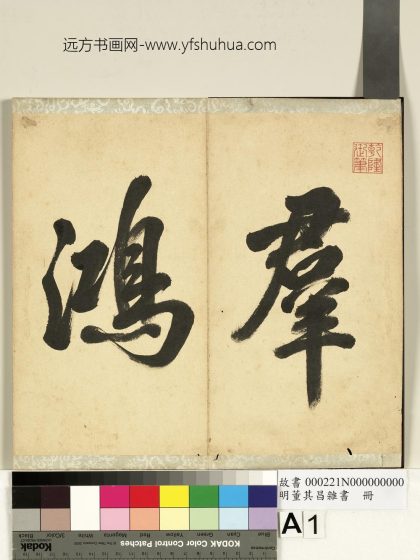 远方书画网-www.yfshuhua.com
羣
鴻
乾隆
御筆
故書 000221N000000000
明董其昌雜書 冊
Kodak
KODAK Color Control Patches
Blue
Cyan
Green
Yellow
Red
Magenta
White
3/Color
Black
A 1